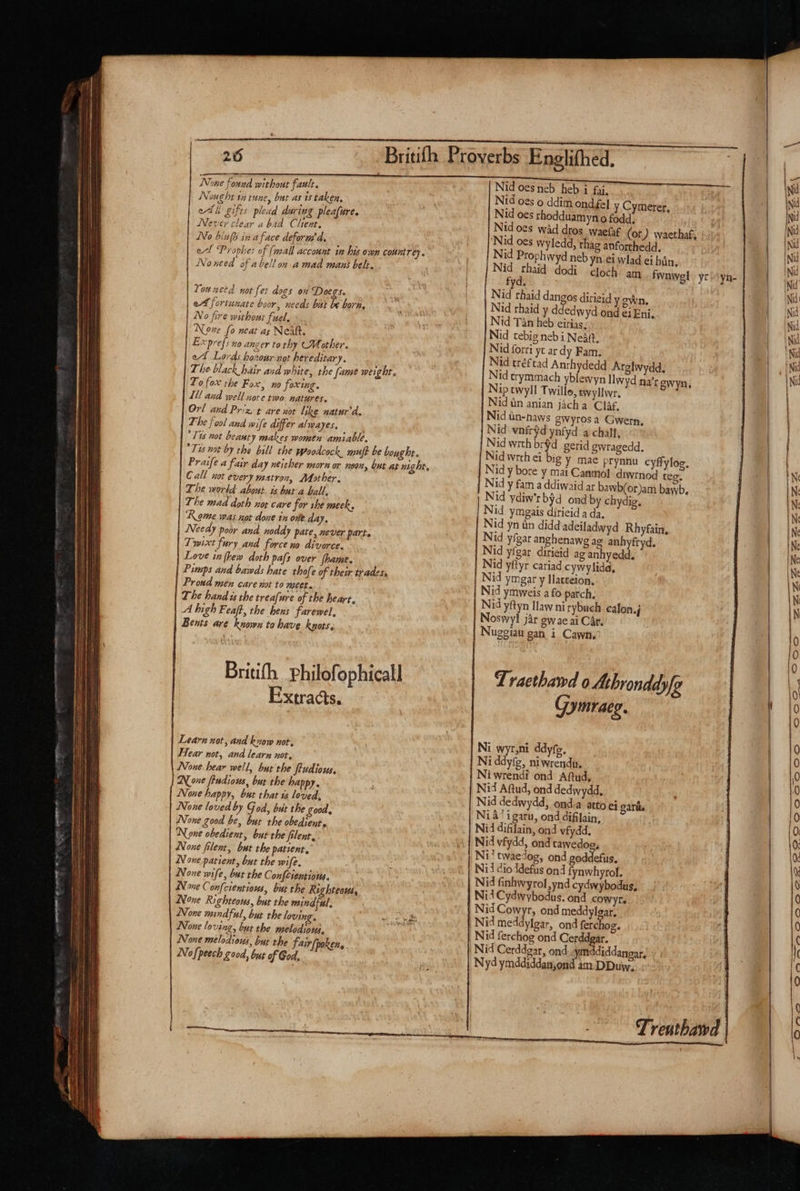 26
British Proverbs Englished.
None found without fault.
Nought in tune, but as is taken.
All gifts plead during pleasure.
Never clear a bad Client.
No blush in a face deform'd.
A Prophet of small account in his own countrey.
No need of a bell on a mad mans belt.
You need not set dogs on Doegs.
A fortunate boor, needs but be born.
No fire without fuel.
None so neat as Neast.
Express no anger to thy Mother.
A Lords honour not hereditary.
The black hair and white, the same weight.
To fox the Fox, no foxing.
Ill and well note two natures.
Orl and Priz, t are not like natur'd.
The fool and wife differ alwayes.
'Tis not beauty makes women amiable.
'Tis not by the bill the woodcock must be bought.
Praise a fair day neither morn or noon, but at night.
Call not every matron, Mother.
The world about is but a ball.
The mad doth not care for the meek.
Rome was not done in one day.
Needy poor and noddy pate, never part.
Twixt fury and force no divorce.
Love in shew doth pass over shame.
Pimps and bawds hate those of their trades.
Proud men care not to meet.
The hand is the treasure of the heart.
A high Feast, the hens farewel.
Bents are known to have knots.
British philosophicall
Extracts.
Learn not, and know not.
Hear not, and learn not.
None hear well, but the studious.
None studious, but the happy.
None happy, but that is loved.
None loved by God, but the good.
None good be, but the obedient.
None obedient, but the silent.
None silent, but the patient.
None patient, but the wise.
None wise, but the Conscientious.
None Conscientious, but the Righteous.
None Righteous, but the mindful.
None mindful, but the loving.
None loving, but the melodious.
None melodious, but the fair spoken.
No speech good, but of God.
Nid oes neb heb i fai.
Nid oes o ddim ondfel y Cymerer.
Nid oes rhodduamyn o fodd.
Nid oes wâd dros waesaf (or) waethaf.
Nid oes wyledd, rhag anforthedd.
Nid Prophwyd neb yn ei wlad ei hûn.
Nid rhaid dodi cloch am fwnwgl yr yn-
fyd.
Nid rhaid dangos dirieid y gŵn.
Nid rhaid y ddedwyd ond ei Eni.
Nid Tân heb eirias.
Nid tebig neb i Neâst.
Nid sorri yt ar dy Fam.
Nid tréftad Anrhydedd Arglwydd.
Nid trymmach yblewyn llwyd na'r gwyn.
Nip twyll Twillo, twyllwr.
Nid ûn anian jâch a Clâf.
Nid ûn-naws gwyros a Gwern.
Nid vnfrŷd ynfyd a chall.
Nid wrth brŷd gerid gwragedd.
Nid wrth ei big y mae prynnu cyffylog.
Nid y bore y mai Canmol diwrnod teg.
Nid y fam a ddiwaid ar bawb(or)am bawb.
Nid ydiw'r bŷd ond by chydig.
Nid ymgais dirieid a da.
Nid yn ûn didd adeiladwyd Rhyfain.
Nid ysgar anghenawg ag anhyfryd.
Nid ysgar dirieid ag anhyedd.
Nid ystyr cariad cywylidd.
Nid ymgar y llatteion.
Nid ymweis a fo parch.
Nid ystyn llaw ni rybuch calon.
Noswyl jâr gwae ai Câr.
Nuggiau gan i Cawn.
Traethawd o Athronddysg
Gymraeg.
Ni wyr, ni ddysg.
Ni ddysg, ni wrendu.
Ni wrendi ond Astud.
Nid Astud, ond dedwydd.
Nid dedwydd, ond a atto ei garû.
Ni â'i garu, ond difilain.
Nid difilain, ond vfydd.
Nid vfydd, ond tawedog.
Nid twaedog, ond goddefus.
Nid dioddefus ond synwhyrol.
Nid sinhwyrol, ynd cydwybodus.
Nid Cydwybodus, ond cowyr.
Nid Cowyr, ond meddylgar.
Nid meddylgar, ond serchog.
Nid serchog ond Cerddgar.
Nid Cerddgar, ond ymddiddangar.
Nyd ymddiddan, ond am DDuw.
Treuthawd